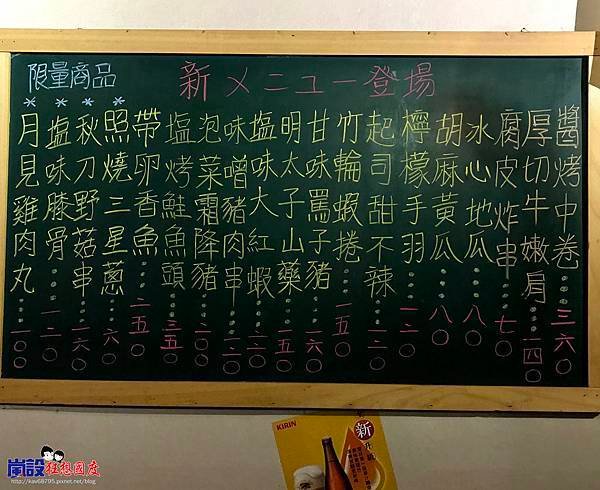 限量商品
新メニュー登場
醬烤中卷……三六〇
厚切牛嫩肩……一四〇
腐皮炸串……七〇
冰心地瓜……八〇
胡麻黃瓜……八〇
檸檬手羽……一二〇
起司甜不辣……一二〇
竹輪蝦捲……一五〇
甘味罵子豬……一六〇
明太子山藥……一五〇
塩味大紅蝦……二〇
味噌豬肉串……一二〇
泡菜霜降豬……二〇〇
塩烤鮭魚頭……三五〇
帶卵香魚……二五〇
*照燒三星蔥……六〇
*秋刀野菇串……一六〇
*塩味膝骨……一二〇
*月見雞肉丸……一〇〇
KIRIN
新
升級
狂想國度
http://kav68795.pixnet.net/blog